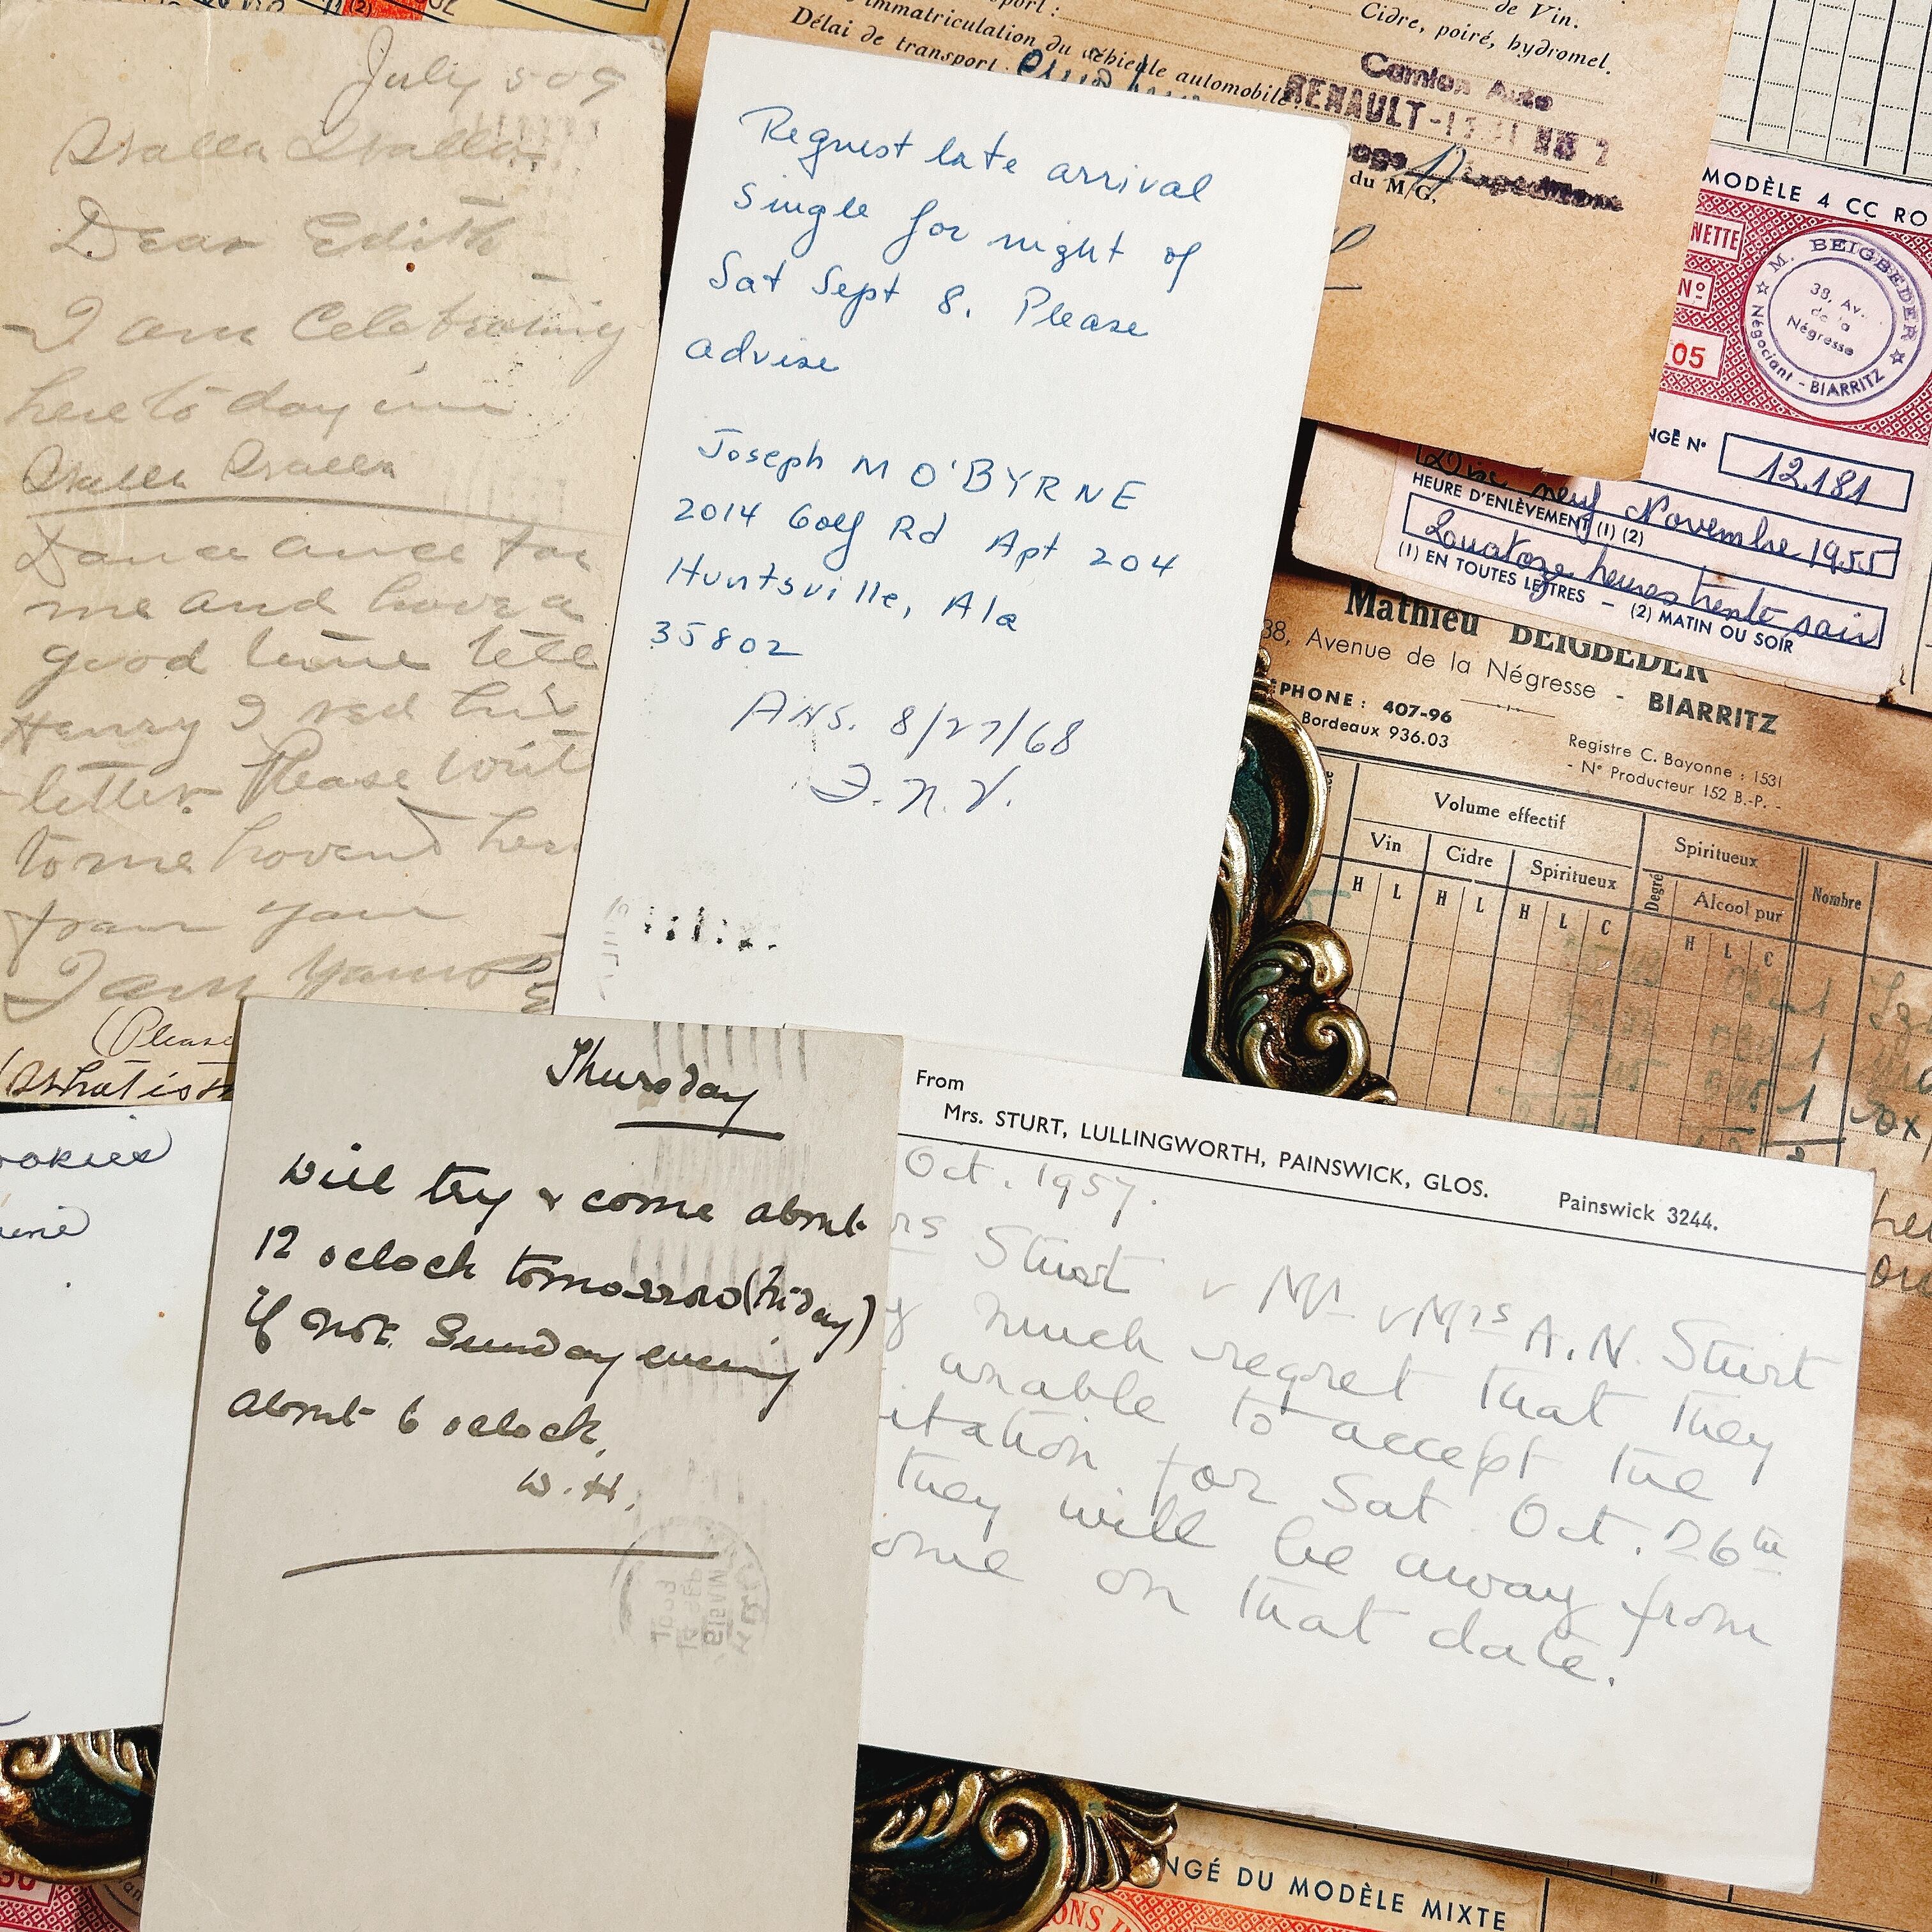 July 5 09
Walla Walla.
Dear Edith
I am Celebrating
here to day in
Walla Walla
Dance once for
me and have a
good time tell
Henry I red his
letter. Please writ
to me
from you
I am yours
(Please
(What is
Request late arrival
Single for night of
Sat Sept 8. Please
advise
Joseph M O'BYRNE
2014 Golf Rd Apt 204
Huntsville, Ala
35802
Ans. 8/27/68
F.N.V.
de Vin.
Cidre, poiré, hydromel.
immatriculation du véhicule automobile:
Délai de transport:
Camion Auto
RENAULT
du M/G,
MODÈLE 4 CC RO
NETTE
Nº
05
M. BEIGBEDER
38, Av.
de la
Négresse
Négociant - BIARRITZ
NGÉ Nº 12.181
Dix neuf Novembre 1955
HEURE D'ENLÈVEMENT (1) (2)
Quatorze heures trente soir
(1) EN TOUTES LETTRES — (2) MATIN OU SOIR
Mathieu BEIGBEDER
38, Avenue de la Négresse - BIARRITZ
ÉPHONE : 407-96
Bordeaux 936.03
Registre C. Bayonne : 1531
- Nº Producteur 152 B.-P. -
Volume effectif
Spiritueux
Vin
Cidre
Spiritueux
Degré
Alcool pur
Nombre
H L H L H L C
H L C
ookies
Thursday
Will try & come about
12 oclock tomorrow (Friday)
if not Sunday evening
about 6 oclock.
W.H.
From
Mrs. STURT, LULLINGWORTH, PAINSWICK, GLOS.
Painswick 3244.
Oct. 1957.
rs Sturt & Mr & Mrs A.N. Sturt
y much regret that they
unable to accept the
itation for Sat Oct. 26th
they will be away from
ome on that date.
NGÉ DU MODÈLE MIXTE